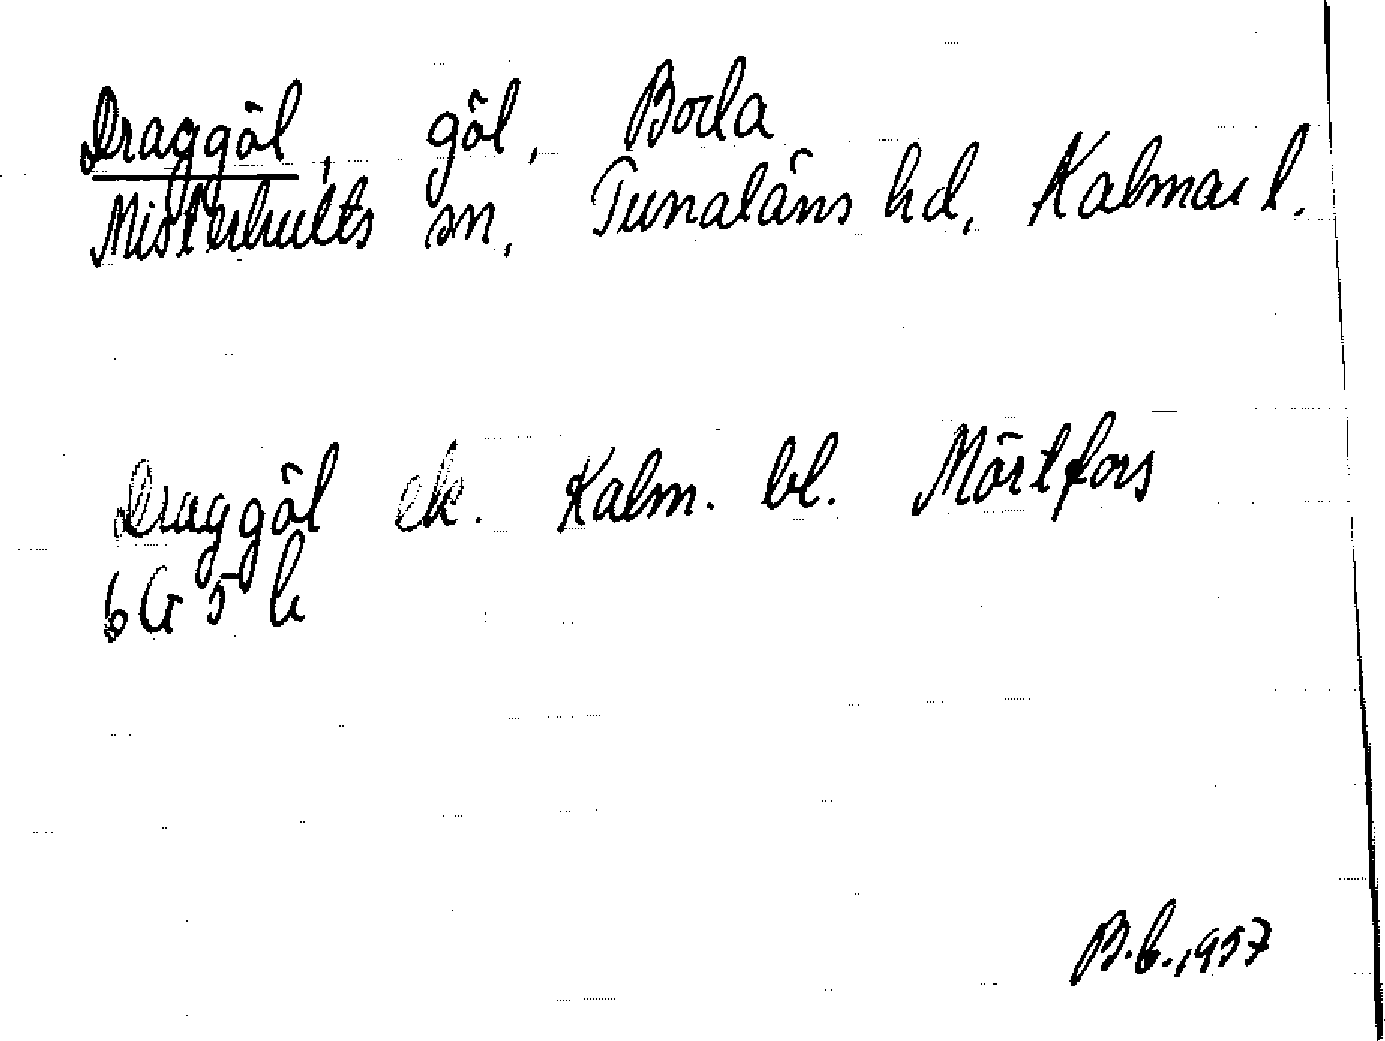 Draggöl, göl, Boda
Misterhults sn, Tunaläns hd, Kalmar l.
Draggöl ek. Kalm. bl. Mörtfors
6G 5 h
B.b.1957